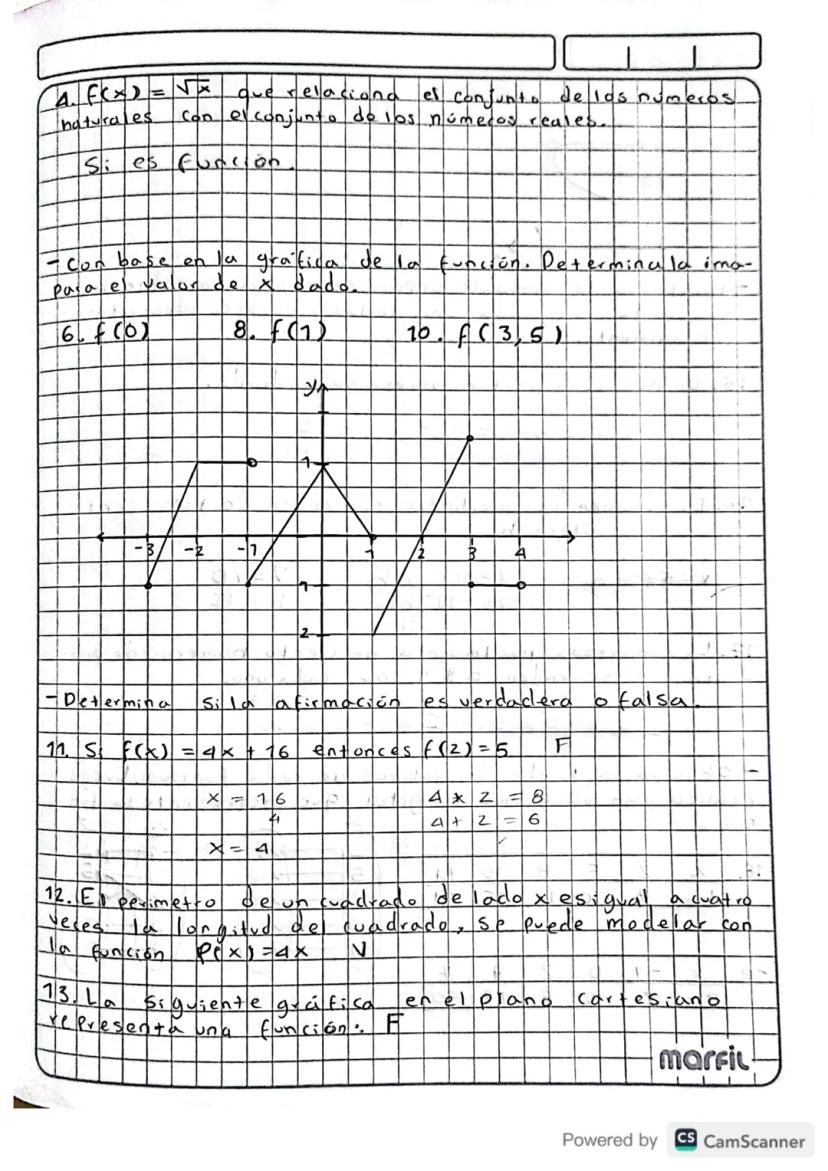 4. f(x) = √x que relaciona el conjunto de los números
naturales con el conjunto de los números reales.
Si es función.
- Con base en la gráfica de la función. Determina la ima-
para el valor de x dado.
6. f(0) 8. f(1) 10. f(3,5)
y
1
-3 -2 -1 1 2 3 4
1
2
- Determina si la afirmación es verdadera o falsa.
11. Si f(x) = 4x + 16 entonces f(2) = 5 F
x = 16 4 * 2 = 8
4 4 + 2 = 6
x = 4
12. El perimetro de un cuadrado de lado x es igual a cuatro
veces la longitud del cuadrado, se puede modelar con
la función P(x) = 4x V
13. La siguiente gráfica en el plano cartesiano
representa una función. F
marfil
Powered by CS CamScanner